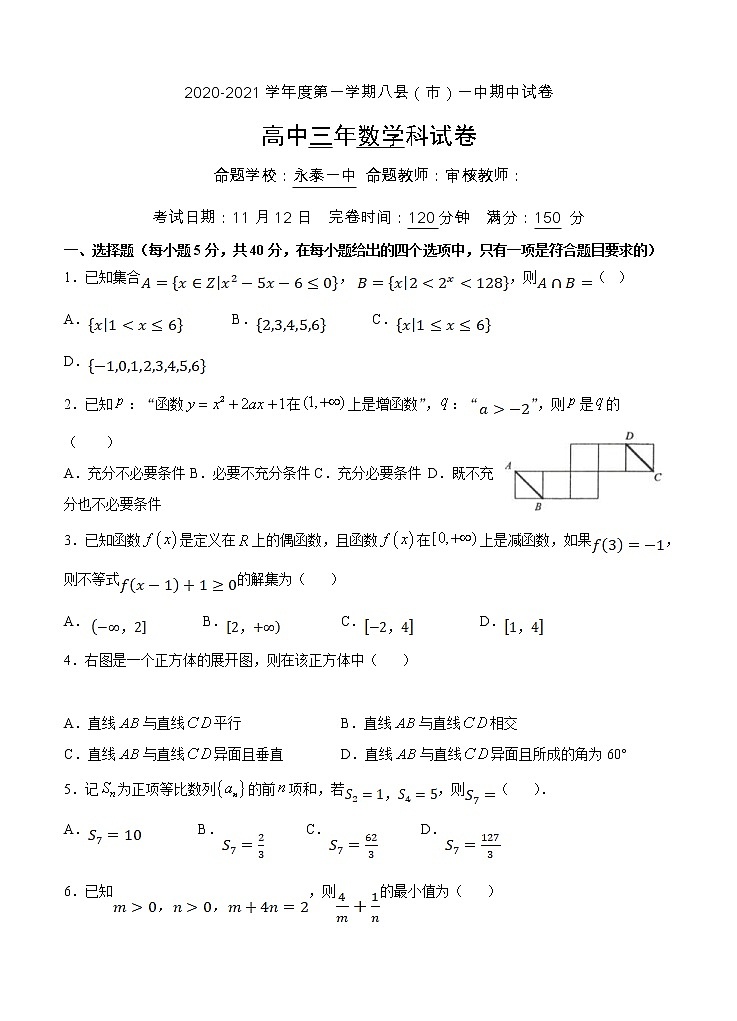 2020-2021学年度第一学期八县（市）一中期中试卷
高中三年数学科试卷
命题学校：永泰一中 命题教师：审核教师：
考试日期：11月12日 完卷时间：120分钟 满分：150 分
一、选择题（每小题5分，共40分，在每小题给出的四个选项中，只有一项是符合题目要求的）
1．已知集合A={x∈Z|x²−5x−6≤0}，B={x|2<2ˣ<128}，则A∩B=（ ）
A．{x|1<x≤6} B．{2,3,4,5,6} C．{x|1≤x≤6}
D．{−1,0,1,2,3,4,5,6}
2．已知p：“函数y=x²+2ax+1在(1,+∞)上是增函数”，q：“a>−2”，则p是q的
（ ）
A．充分不必要条件 B．必要不充分条件 C．充分必要条件 D．既不充
分也不必要条件
A B C D
3．已知函数f(x)是定义在R上的偶函数，且函数f(x)在[0,+∞)上是减函数，如果f(3)=−1，
则不等式f(x−1)+1≥0的解集为（ ）
A．(−∞，2] B．[2，+∞) C．[−2，4] D．[1，4]
4．右图是一个正方体的展开图，则在该正方体中（ ）
A．直线AB与直线CD平行 B．直线AB与直线CD相交
C．直线AB与直线CD异面且垂直 D．直线AB与直线CD异面且所成的角为60°
5．记Sₙ为正项等比数列{aₙ}的前n项和，若S₂=1，S₄=5，则S₇=（ ）．
A．S₇=10 B．S₇=2/3 C．S₇=62/3 D．S₇=127/3
6．已知m>0，n>0，m+4n=2，则4/m+1/n的最小值为（ ）